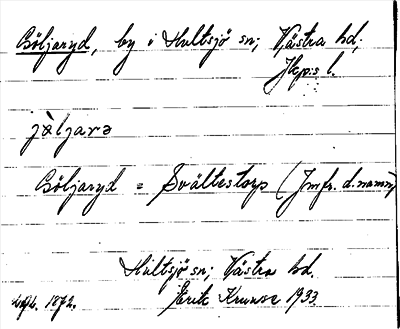 Böljaryd, by i Hultsjö sn; Västra hd;
Jkp:s l.
jòljarə
Böljaryd = Svältestorp (Jmfr. d. namn)
Hultsjö sn; Västra hd.
uppt. 1872. Erik Kruuse 1933